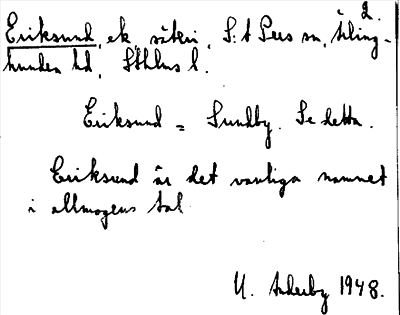 2.
Eriksund, ek, säteri, S:t Pers sn, Åling-
hundra hd, Sthlms l.
Eriksund = Sundby. Se detta.
Eriksund är det vanliga namnet
i allmogens tal
U. Anderby 1948.